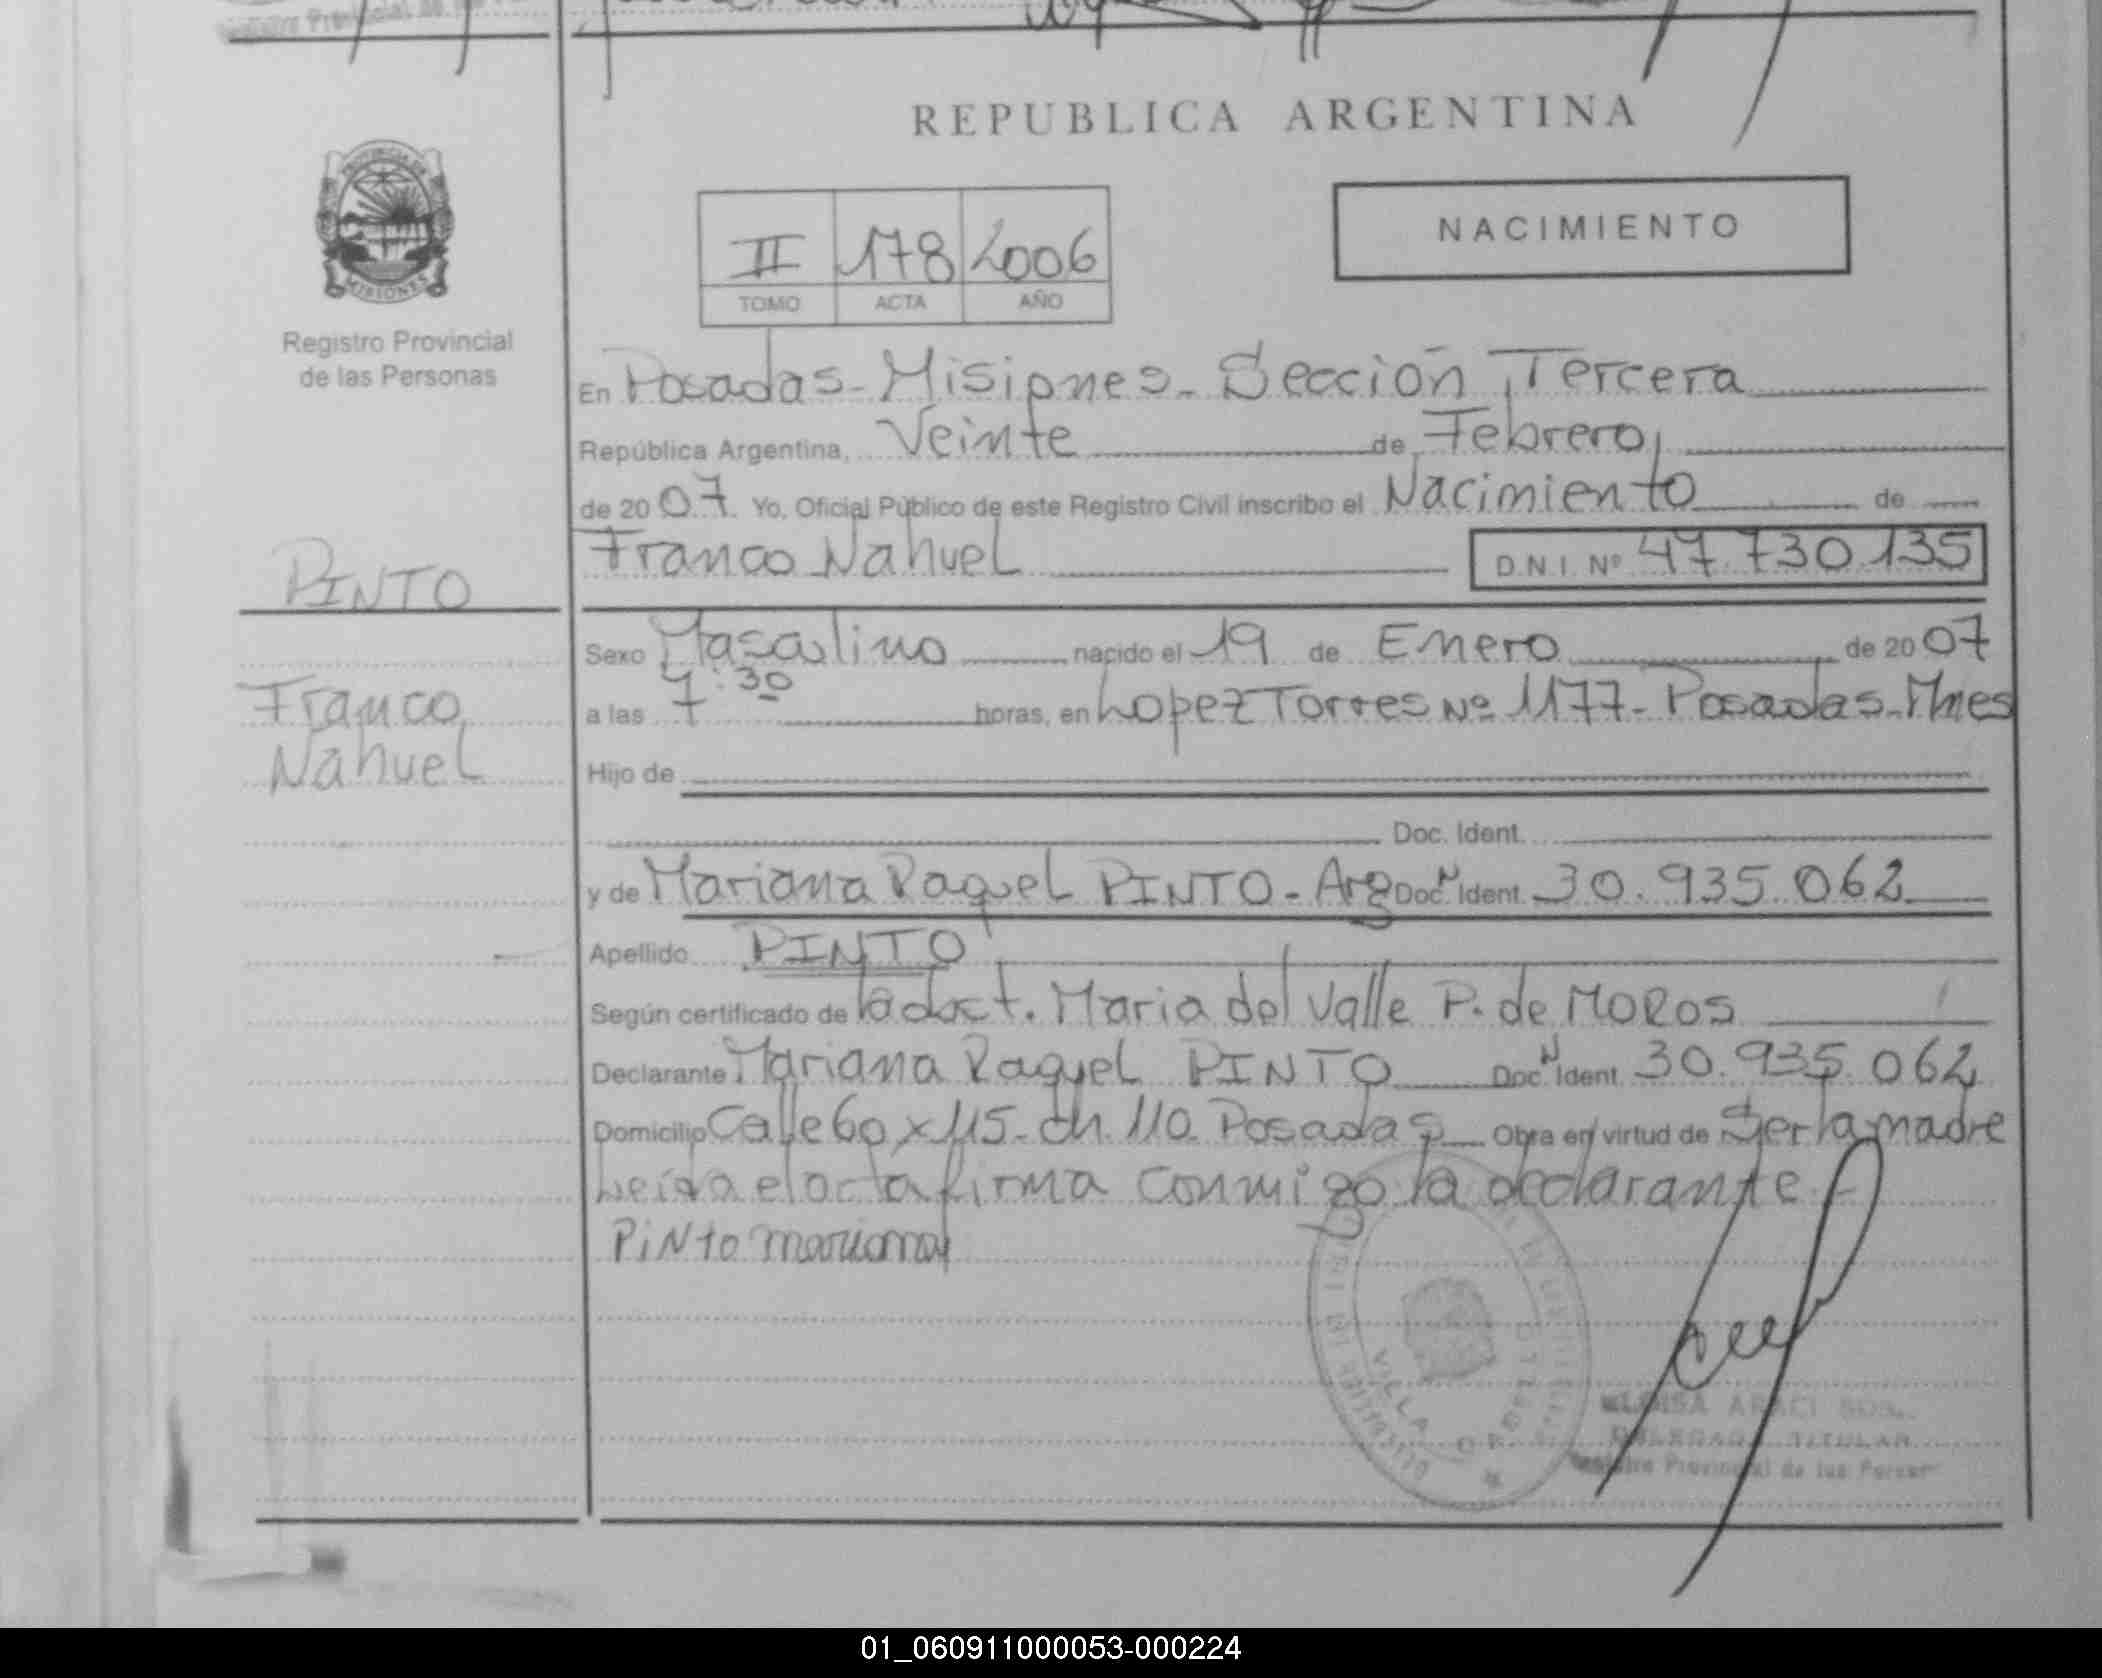 REPUBLICA ARGENTINA
PROVINCIA DE
MISIONES
Registro Provincial
de las Personas
II 178 2006
TOMO ACTA AÑO
NACIMIENTO
En Posadas - Misiones - Sección Tercera
República Argentina, Veinte de Febrero,
de 2007. Yo, Oficial Público de este Registro Civil inscribo el Nacimiento de
Franco Nahuel D.N.I. Nº 47.730.135
PINTO
Franco
Nahuel
Sexo Masculino nacido el 19 de Enero de 2007
a las 7:30 horas, en Lopez Torres Nº 1177 - Posadas - Mnes
Hijo de
Doc. Ident.
y de Mariana Raquel PINTO - Arg Doc. N Ident. 30.935.062
Apellido PINTO
Según certificado de la doct. Maria del Valle P. de MOROS
Declarante Mariana Raquel PINTO Doc. N Ident. 30.935.062
Domicilio Calle 60 x 115 - ch. 110 Posadas Obra en virtud de Ser la madre
Leída el acta firma conmigo la declarante -
PiNto mariana
VILLA CABELLO
ELOISA ARACI
DELEGADA TITULAR
Registro Provincial de las Person
01_060911000053-000224